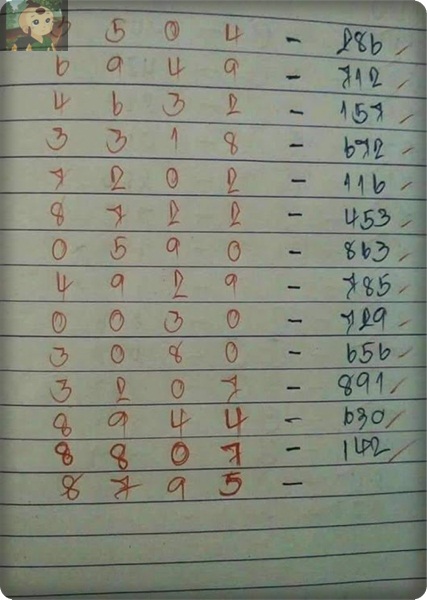 5 0 4 - 286
6 9 4 9 - 712
4 6 3 2 - 157
3 3 1 8 - 672
7 2 0 2 - 116
8 7 2 2 - 453
0 5 9 0 - 863
4 9 2 9 - 785
0 0 3 0 - 729
3 0 8 0 - 656
3 2 0 7 - 891
8 9 4 4 - 630
8 8 0 7 - 142
8 7 9 5 -